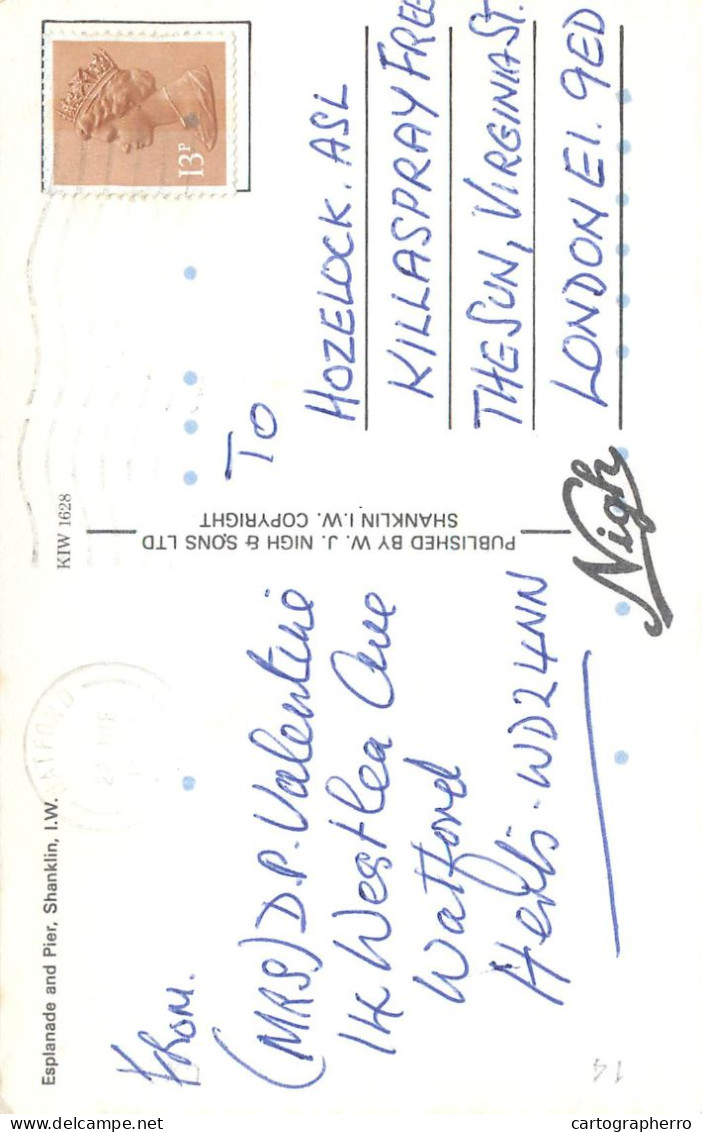 Esplanade and Pier, Shanklin, I.W.
From.
(MRS) D.P. Valentine
14 Westlea Ave
Watford
Herts. WD2 4NN
KIW 1628
PUBLISHED BY W. J. NIGH & SONS LTD
SHANKLIN I.W. COPYRIGHT
Nigh
13P
To
HOZELOCK. ASL
KILLASPRAY FREE
THE SUN, VIRGINIA ST.
LONDON E1. 9ED
WATFORD
14
cartographerro